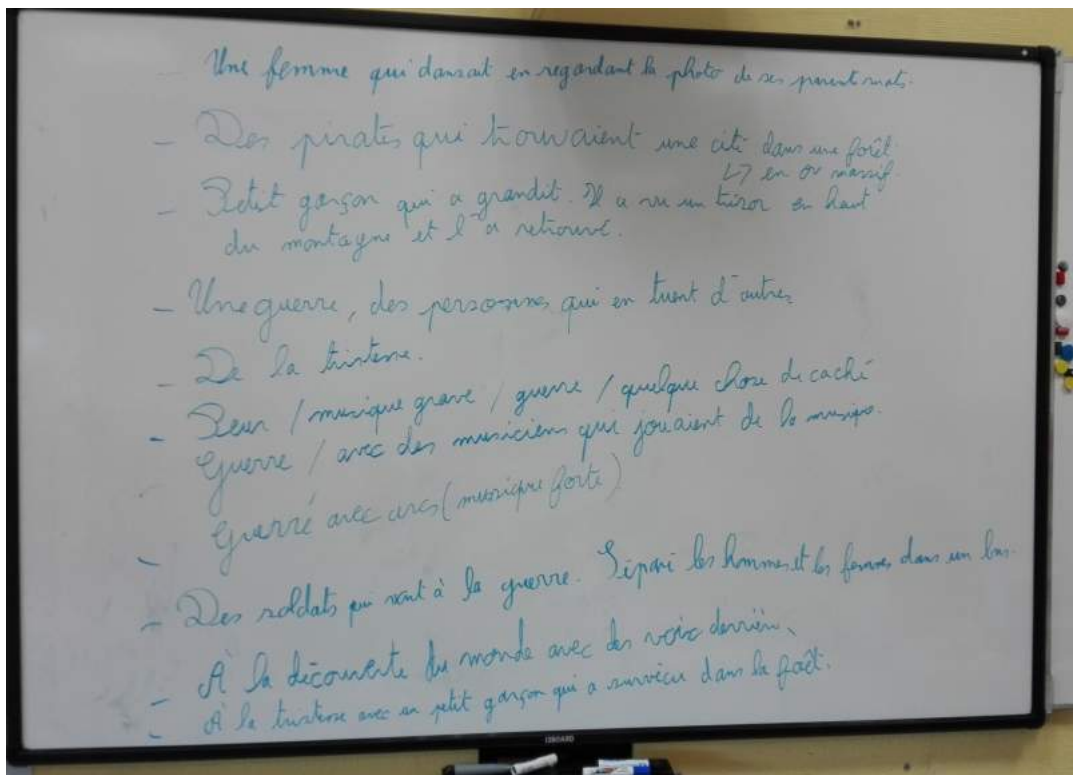 - Une femme qui dansait en regardant la photo de ses parent morts.
- Des pirates qui trouvaient une cité dans une forêt.
↳ en or massif.
- Petit garçon qui a grandit. Il a vu un trésor en haut
du montagne et l'a retrouvé.
- Une guerre, des personnes qui en tuent d'autres
- De la tristesse.
- Peur / musique grave / guerre / quelque chose de caché
- Guerre / avec des musiciens qui jouaient de la musique.
- Guerre avec arcs (musique forte)
- Des soldats qui vont à la guerre. Séparé les hommes et les femmes dans un bus.
- À la découverte du monde avec des voix derrière.
- À la tristesse avec un petit garçon qui a survécu dans la forêt.
LEBOARD